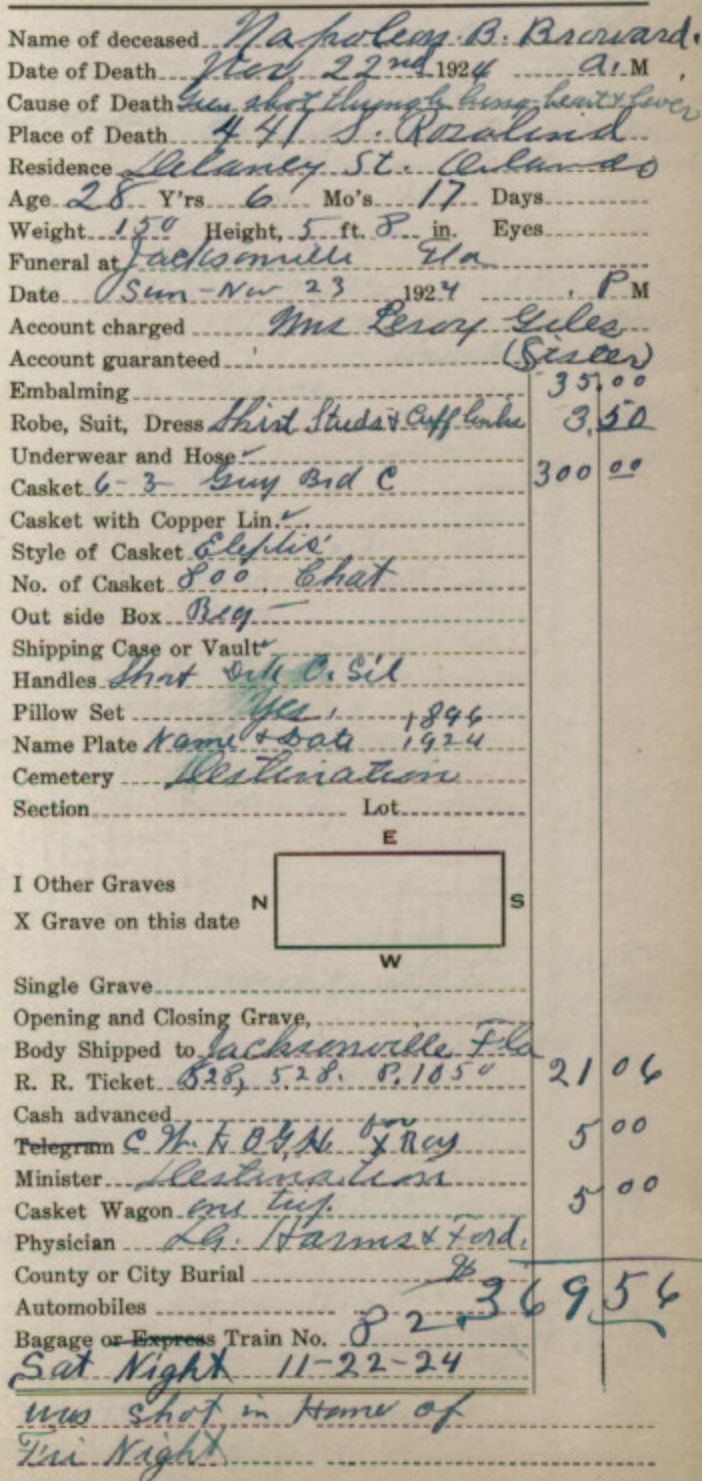 Name of deceased Napoleon. B. Broward.
Date of Death Nov 22nd 1924 a. M.
Cause of Death Gun shot through lung heart & liver
Place of Death 441 S. Rosalind
Residence Delaney St. Orlando
Age 28 Y'rs 6 Mo's 17 Days
Weight 150 Height, 5 ft. 8 in. Eyes
Funeral at Jacksonville Fla
Date Sun - Nov 23 1924 P M
Account charged Mrs Leroy Giles
Account guaranteed (Sister)
Embalming 35.00
Robe, Suit, Dress Shirt Studs & Cuff links 3.50
Underwear and Hose
Casket 6-3 Gray Brd C 300 00
Casket with Copper Lin.
Style of Casket Eleptis
No. of Casket 800. Chat
Out side Box Reg -
Shipping Case or Vault
Handles Short O. Sil
Pillow Set Yes, 1896
Name Plate Name & Date 1924
Cemetery Destination
Section Lot
E
I Other Graves
N S
X Grave on this date
W
Single Grave
Opening and Closing Grave,
Body Shipped to Jacksonville Fla
R. R. Ticket 528, 528. P. 1050 21 06
Cash advanced
Telegram for X Ray 5 00
Minister Destination
Casket Wagon one trip. 5 00
Physician Harms & Ford.
County or City Burial
Automobiles 369 56
Bagage or Express Train No. 82.
Sat Night 11-22-24
was shot in Home of
Fri Night